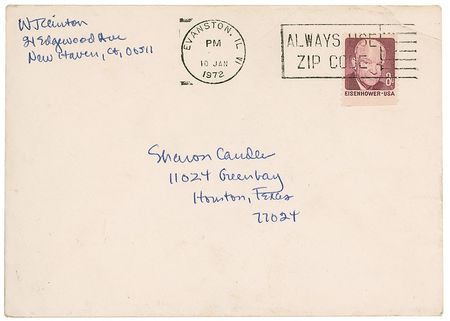 WJClinton
21 Edgewood Ave
New Haven, Ct, 06511
EVANSTON, IL
PM
10 JAN
1972
ALWAYS USE
ZIP CODE
8¢
EISENHOWER·USA
Sharon
11024 Greenbay
Houston, Texas
77024